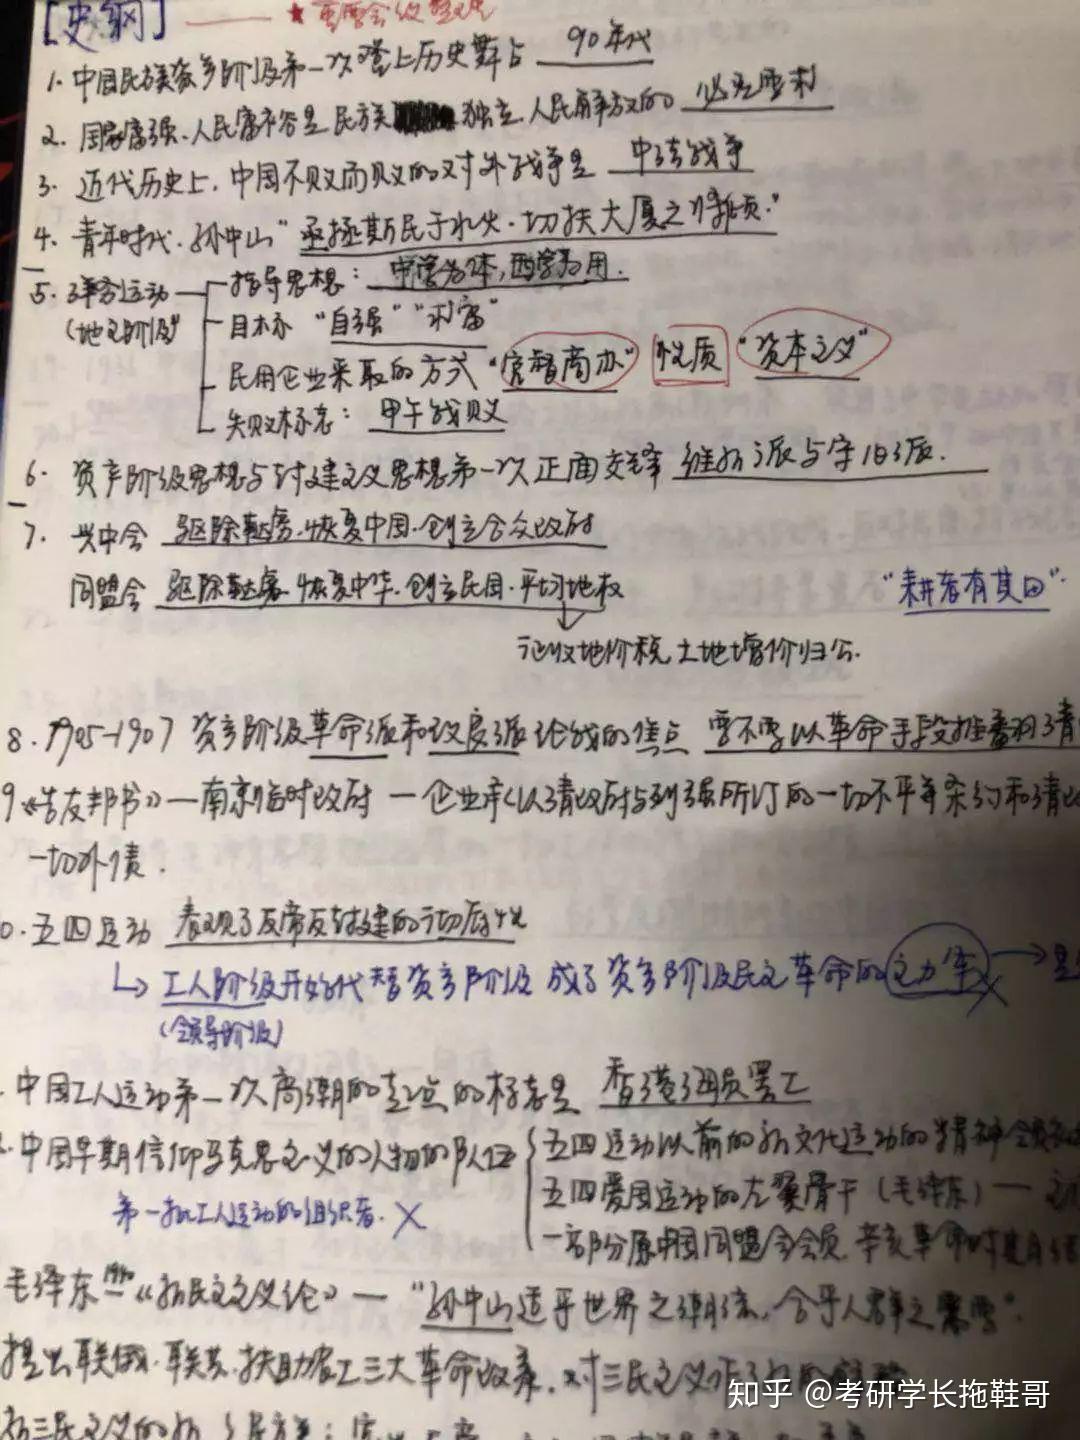 [史纲] ——— ★
1. 中国民族资产阶级第一次登上历史舞台 90年代
2. 国家富强、人民富裕是民族 独立、人民解放的 必然要求
3. 近代历史上,中国不败而败的对外战争是 中法战争
4. 青年时代.孙中山“亟拯斯民于水火.切扶大厦之将倾.”
5. 洋务运动 指导思想: 中学为体,西学为用.
(地主阶级) 目标 “自强”“求富”
民用企业采取的方式 “官督商办” 性质 “资本主义”
失败标志: 甲午战败
6. 资产阶级思想与封建主义思想第一次正面交锋 维新派与守旧派.
7. 兴中会 驱除鞑虏.恢复中国.创立合众政府
同盟会 驱除鞑虏.恢复中华.创立民国.平均地权 “耕者有其田”
土地增价归公.
8. 1905-1907 资产阶级革命派和改良派论战的焦点 要不要以革命手段推翻清
9《告友邦书》—南京临时政府 — 以清政府与列强所订的一切不平等条约和清
一切外债.
0. 五四运动 表现了反帝反封建的彻底性
↳ 工人阶级开始代替资产阶级 成了资产阶级民主革命的主力军 × → 是
(领导阶级)
. 中国工人运动第一次高潮的起点的标志是 香港海员罢工
. 中国早期信仰马克思主义的人物的队伍 五四运动以前的新文化运动的精神领
第一批工人运动的组织者. × 五四爱国运动的左翼骨干(毛泽东)—
一部分原中国同盟会会员.辛亥革命时期
毛泽东 《新民主主义论》— “孙中山适乎世界之潮流,合乎人群之需要”.
提出联俄.联共.扶助农工三大革命政策.对三民主义作了
知乎 @考研学长拖鞋哥
新三民主义的